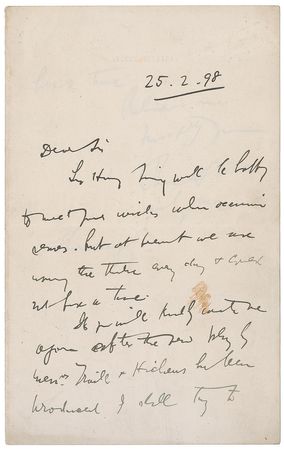 25.2.98
Dear Sir
Sir Henry Irving will be happy
to meet your wishes when occasion
serves. But at present we are
using the theatre every day & could
not fix a time.
If you will kindly write me
again after the new play by
Messrs Traill & Hichens has been
produced I shall try to